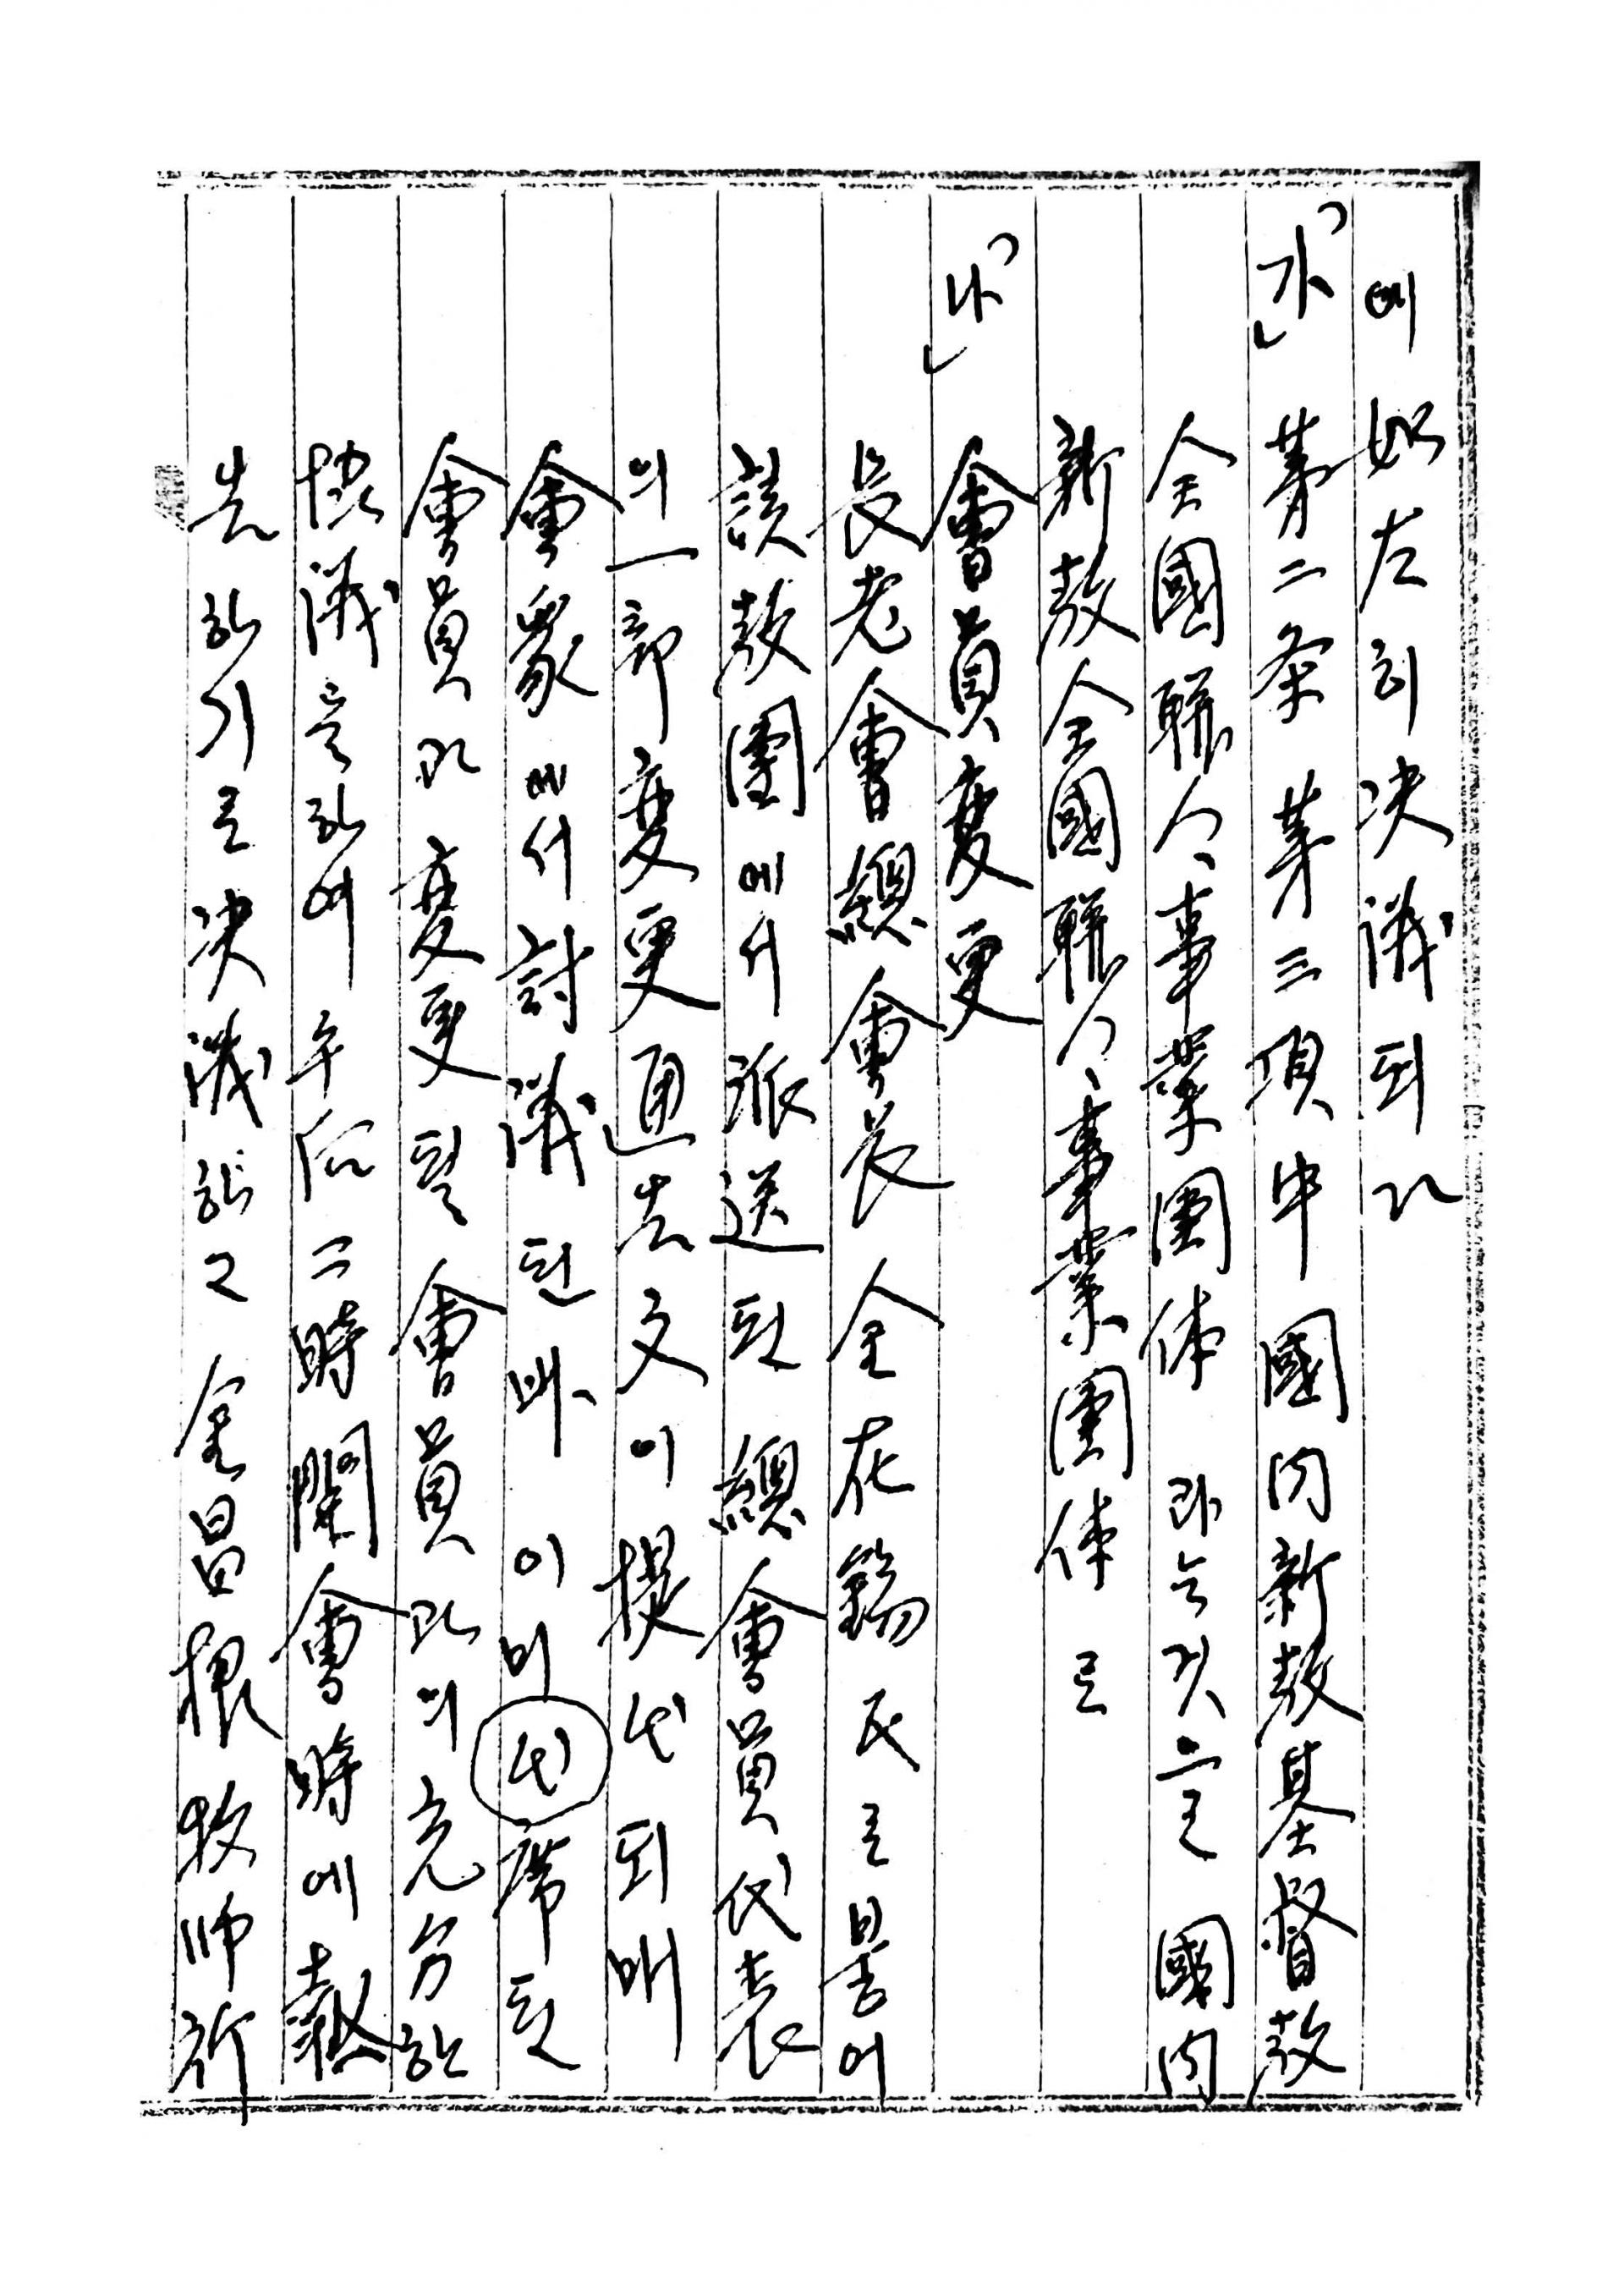 에 如左히 決議되다
「가」 第二条 第三項中 國内新教基督教
全國聯合事業團体 라는 것을 國内
新教全國聯合事業團体로
「나」 會員変更
長老會總會長 全在錫 氏로븟어
該教團에서 派送된 總會員代表
의 一部変更通告文이 提出되매
會衆에서 討議된바 이미 出席된
會員과 変更될 會員과의 充分한
協議를 하여 午后二時開會時에 報
告하기로 決議하고 金昌根 牧師 祈